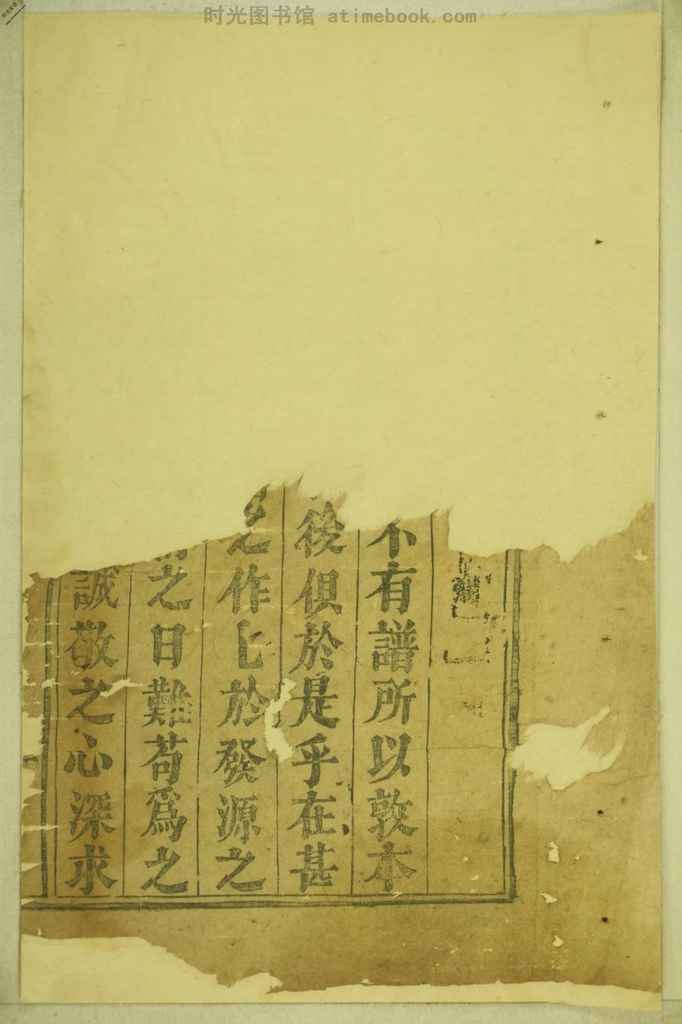 时光图书馆 atimebook.com
不有譜所以敦本
後俱於是乎在甚
之作上於發源之
之日難苟爲之
誠敬之心深求